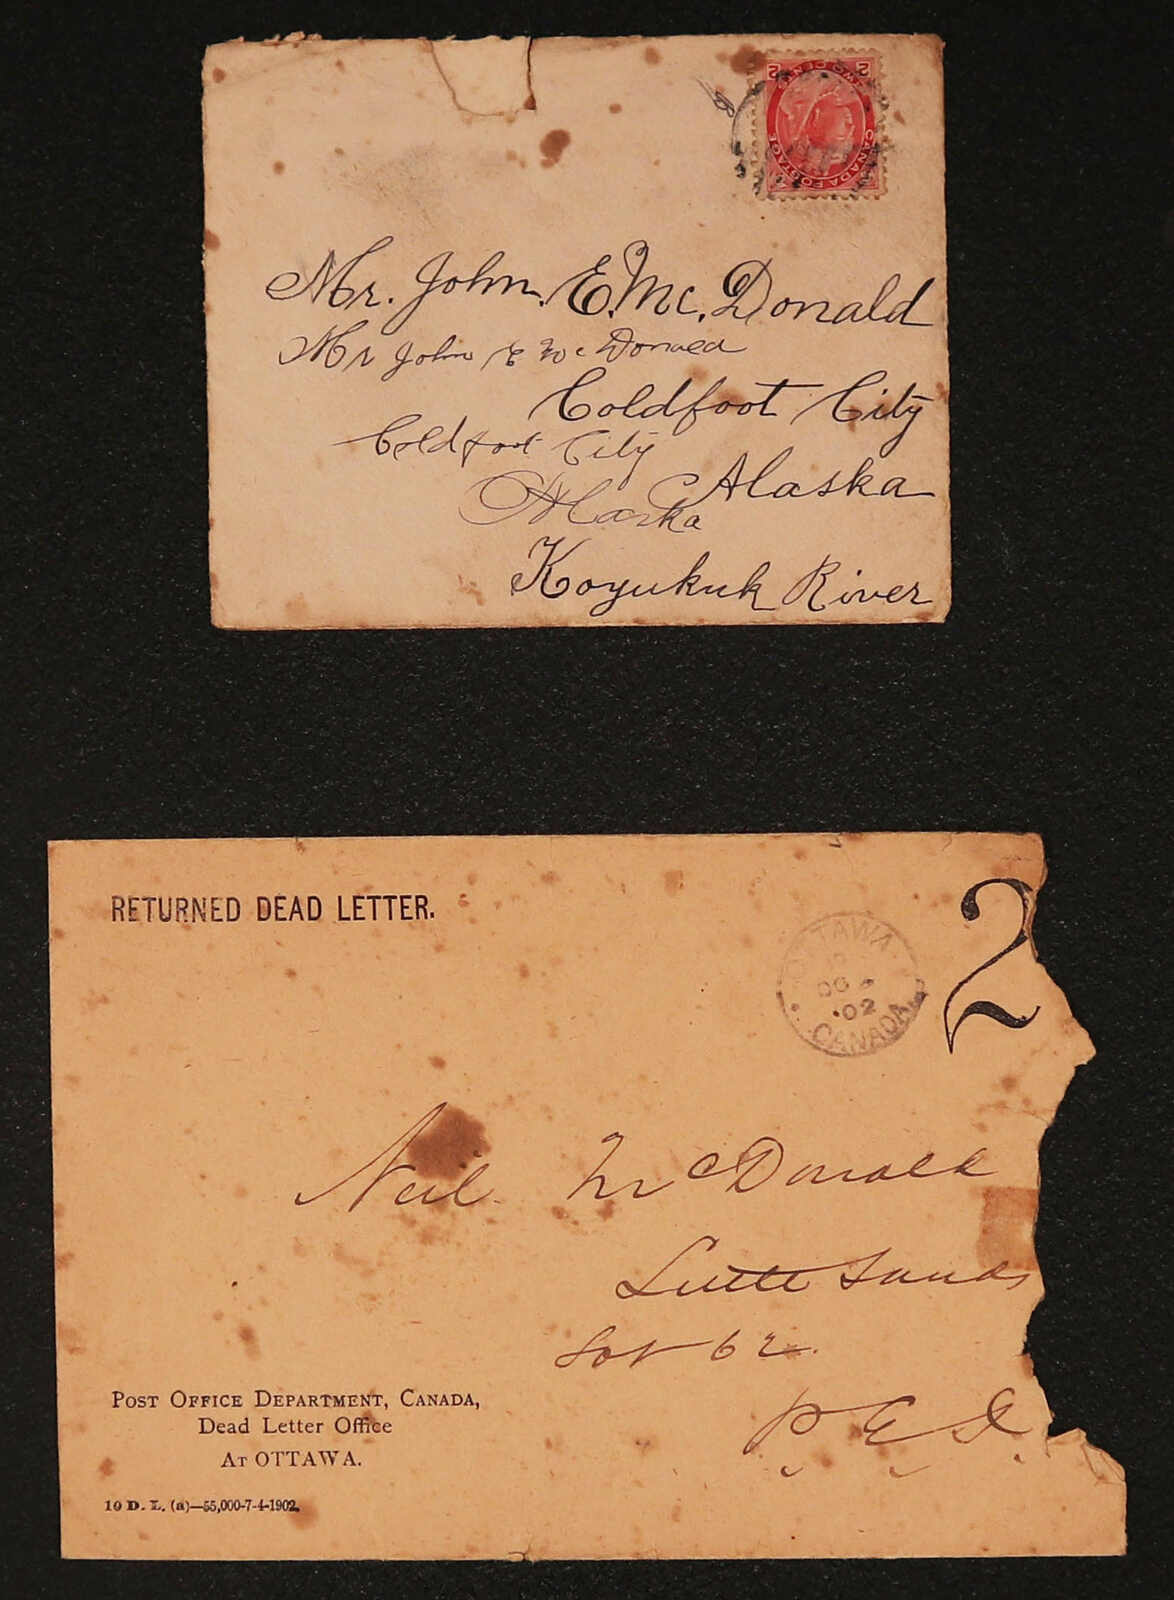 2 TWO CENTS 2
CANADA POSTAGE
Mr. John. E. Mc. Donald
Mr John E Mc Donald
Coldfoot City
Coldfoot City
Alaska
Alaska
Koyukuk River
RETURNED DEAD LETTER.
2
OTTAWA
'02
CANADA
Neil McDonald
Little Sands
Lot 62.
P. E. I.
POST OFFICE DEPARTMENT, CANADA,
Dead Letter Office
AT OTTAWA.
10 D. L. (a)—55,000-7-4-1902.